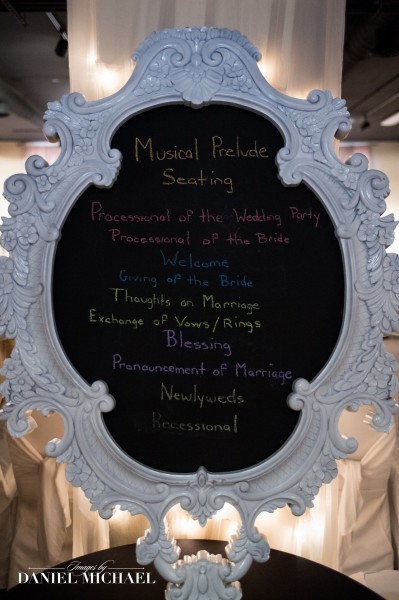 Musical Prelude
Seating
Processional of the Wedding Party
Processional of the Bride
Welcome
Giving of the Bride
Thoughts on Marriage
Exchange of Vows/Rings
Blessing
Pronouncement of Marriage
Newlyweds
Recessional
Images by
DANIEL MICHAEL